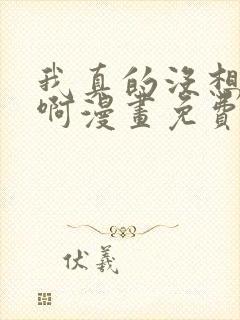 我真的没想
啊漫畫免費
伏羲